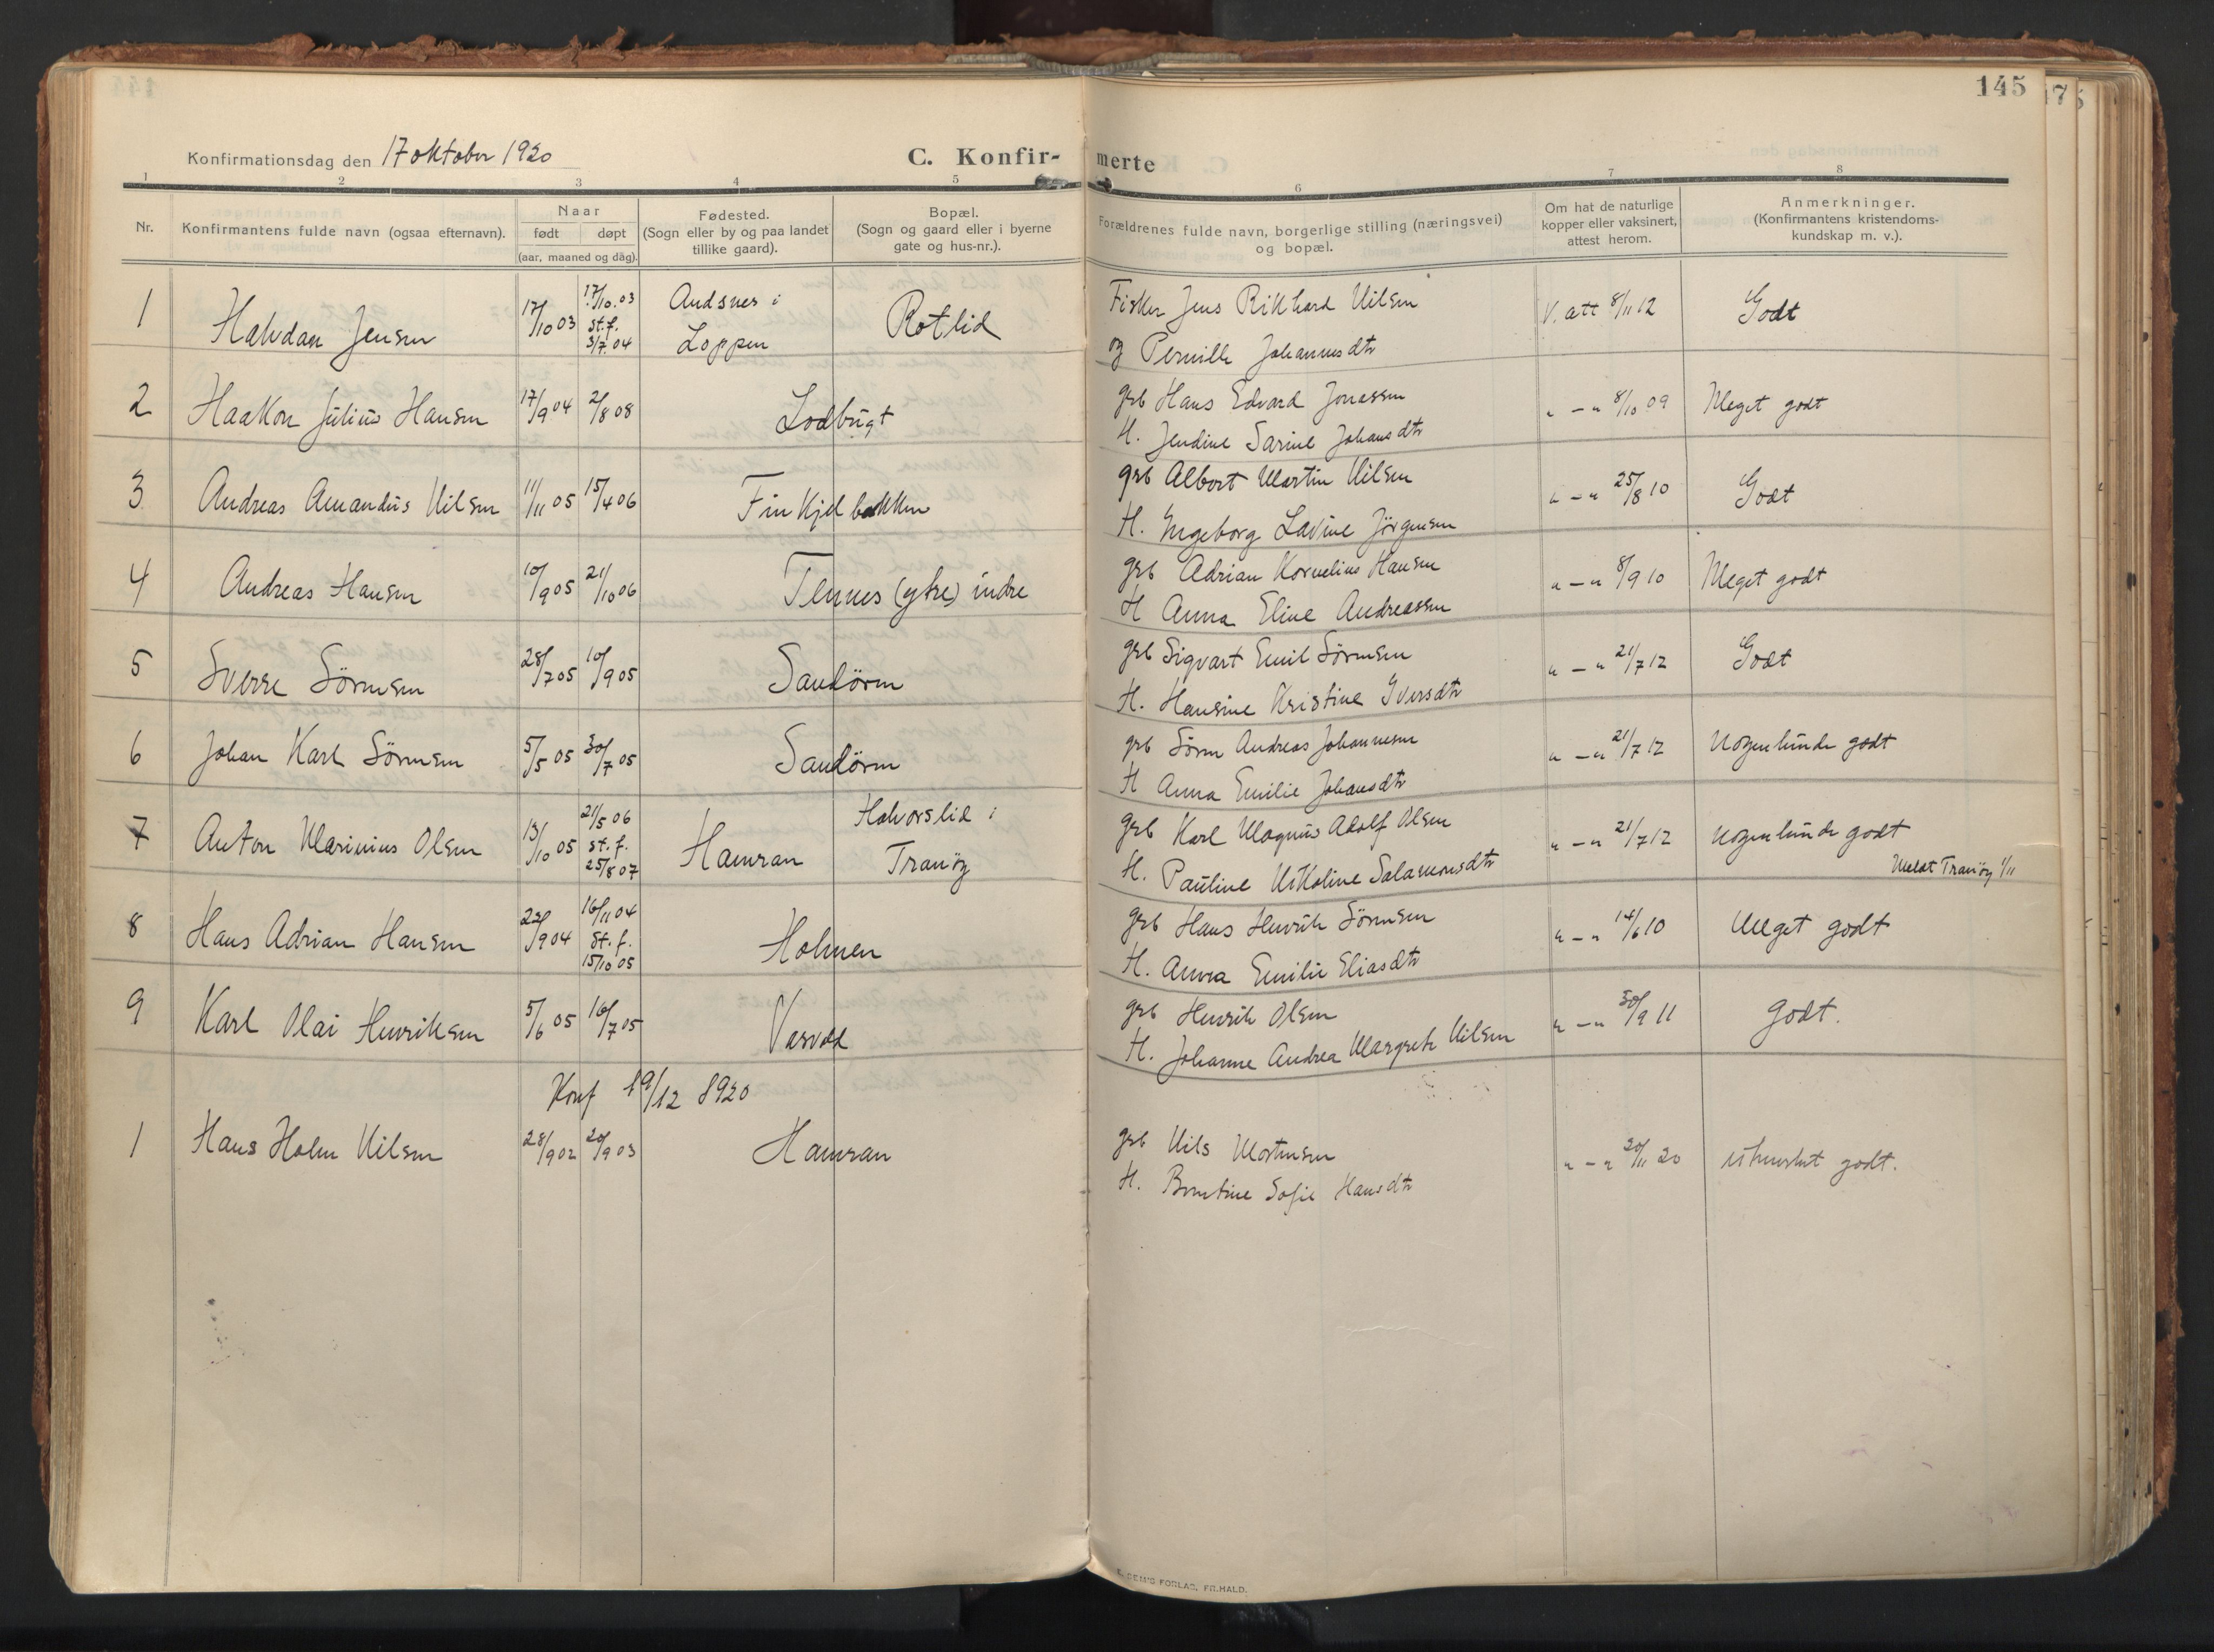 145
Konfirmationsdag den 17 oktober 1920
C. Konfir- merte
1 2 3 4 5 6 7 8
Nr.
Konfirmantens fulde navn (ogsaa efternavn).
Naar
født døpt
(aar, maaned og dag).
Fødested.
(Sogn eller by og paa landet
tillike gaard).
Bopæl.
(Sogn og gaard eller i byerne
gate og hus-nr.).
Forældrenes fulde navn, borgerlige stilling (næringsvei)
og bopæl.
Om hat de naturlige
kopper eller vaksinert,
attest herom.
Anmerkninger.
(Konfirmantens kristendoms-
kundskap m. v.).
1 Halvdan Jensen 17/10 03 17/10.03 st.f. 3/7.04 Andsnes i Loppen Rotlid
Fisker Jens Rikhard Nilsen V. att 8/11 12 Godt
og Pernille Johannesdtr
2 Haakon Julius Hansen 17/9 04 2/8 08 Lodbugt
grb Hans Edvard Jonassen " - " 8/10 09 Meget godt
H. Jendine Sarine Johansdtr
3 Andreas Amandus Nilsen 11/11 05 15/4 06 Finkjelbakken
grb Albert Martin Nilsen " - " 25/8 10 Godt
H. Ingeborg Lavine Jörgensen
4 Andreas Hansen 10/9 05 21/10 06 Tennes (ytre) indre
grb Adrian Kornelius Hansen " - " 8/9 10 Meget godt
H Anna Eline Andreassen
5 Sverre Sörensen 28/7 05 10/9 05 Sandören
grb Sigvart Emil Sörensen " - " 21/7 12 Godt
H. Hansine Kristine Iversdtr
6 Johan Karl Sörensen 5/5 05 30/7 05 Sandören
grb Sören Andreas Johannesen " - " 21/7 12 Nogenlunde godt
H Anna Emilie Johansdtr
7 Anton Marinius Olsen 13/10 05 21/5 06 st.f. 25/8 07 Hamran Halvorslid i Tranöy
grb Karl Magnus Adolf Olsen " - " 21/7 12 Nogenlunde godt
H. Pauline Nikoline Salamonsdtr Meldt Tranöy 1/11
8 Hans Adrian Hansen 22/9 04 16/11 04 St.f. 15/10 05 Holmen
grb Hans Henrik Sörensen " - " 14/6 10 Meget godt
H. Anna Emilie Eliasdtr
9 Karl Olai Henriksen 5/6 05 16/7 05 Vasvold
grb Henrik Olsen " - " 30/9 11 Godt.
H. Johanne Andrea Margrete Nilsen
Konf 19/12 1920
1 Hans Holm Nilsen 28/9 02 20/9 03 Hamran
grb Nils Mortensen " - " 20/11 20 godt.
H. Berntine Sofie Hansdtr
FORLAG, FR.HALD.